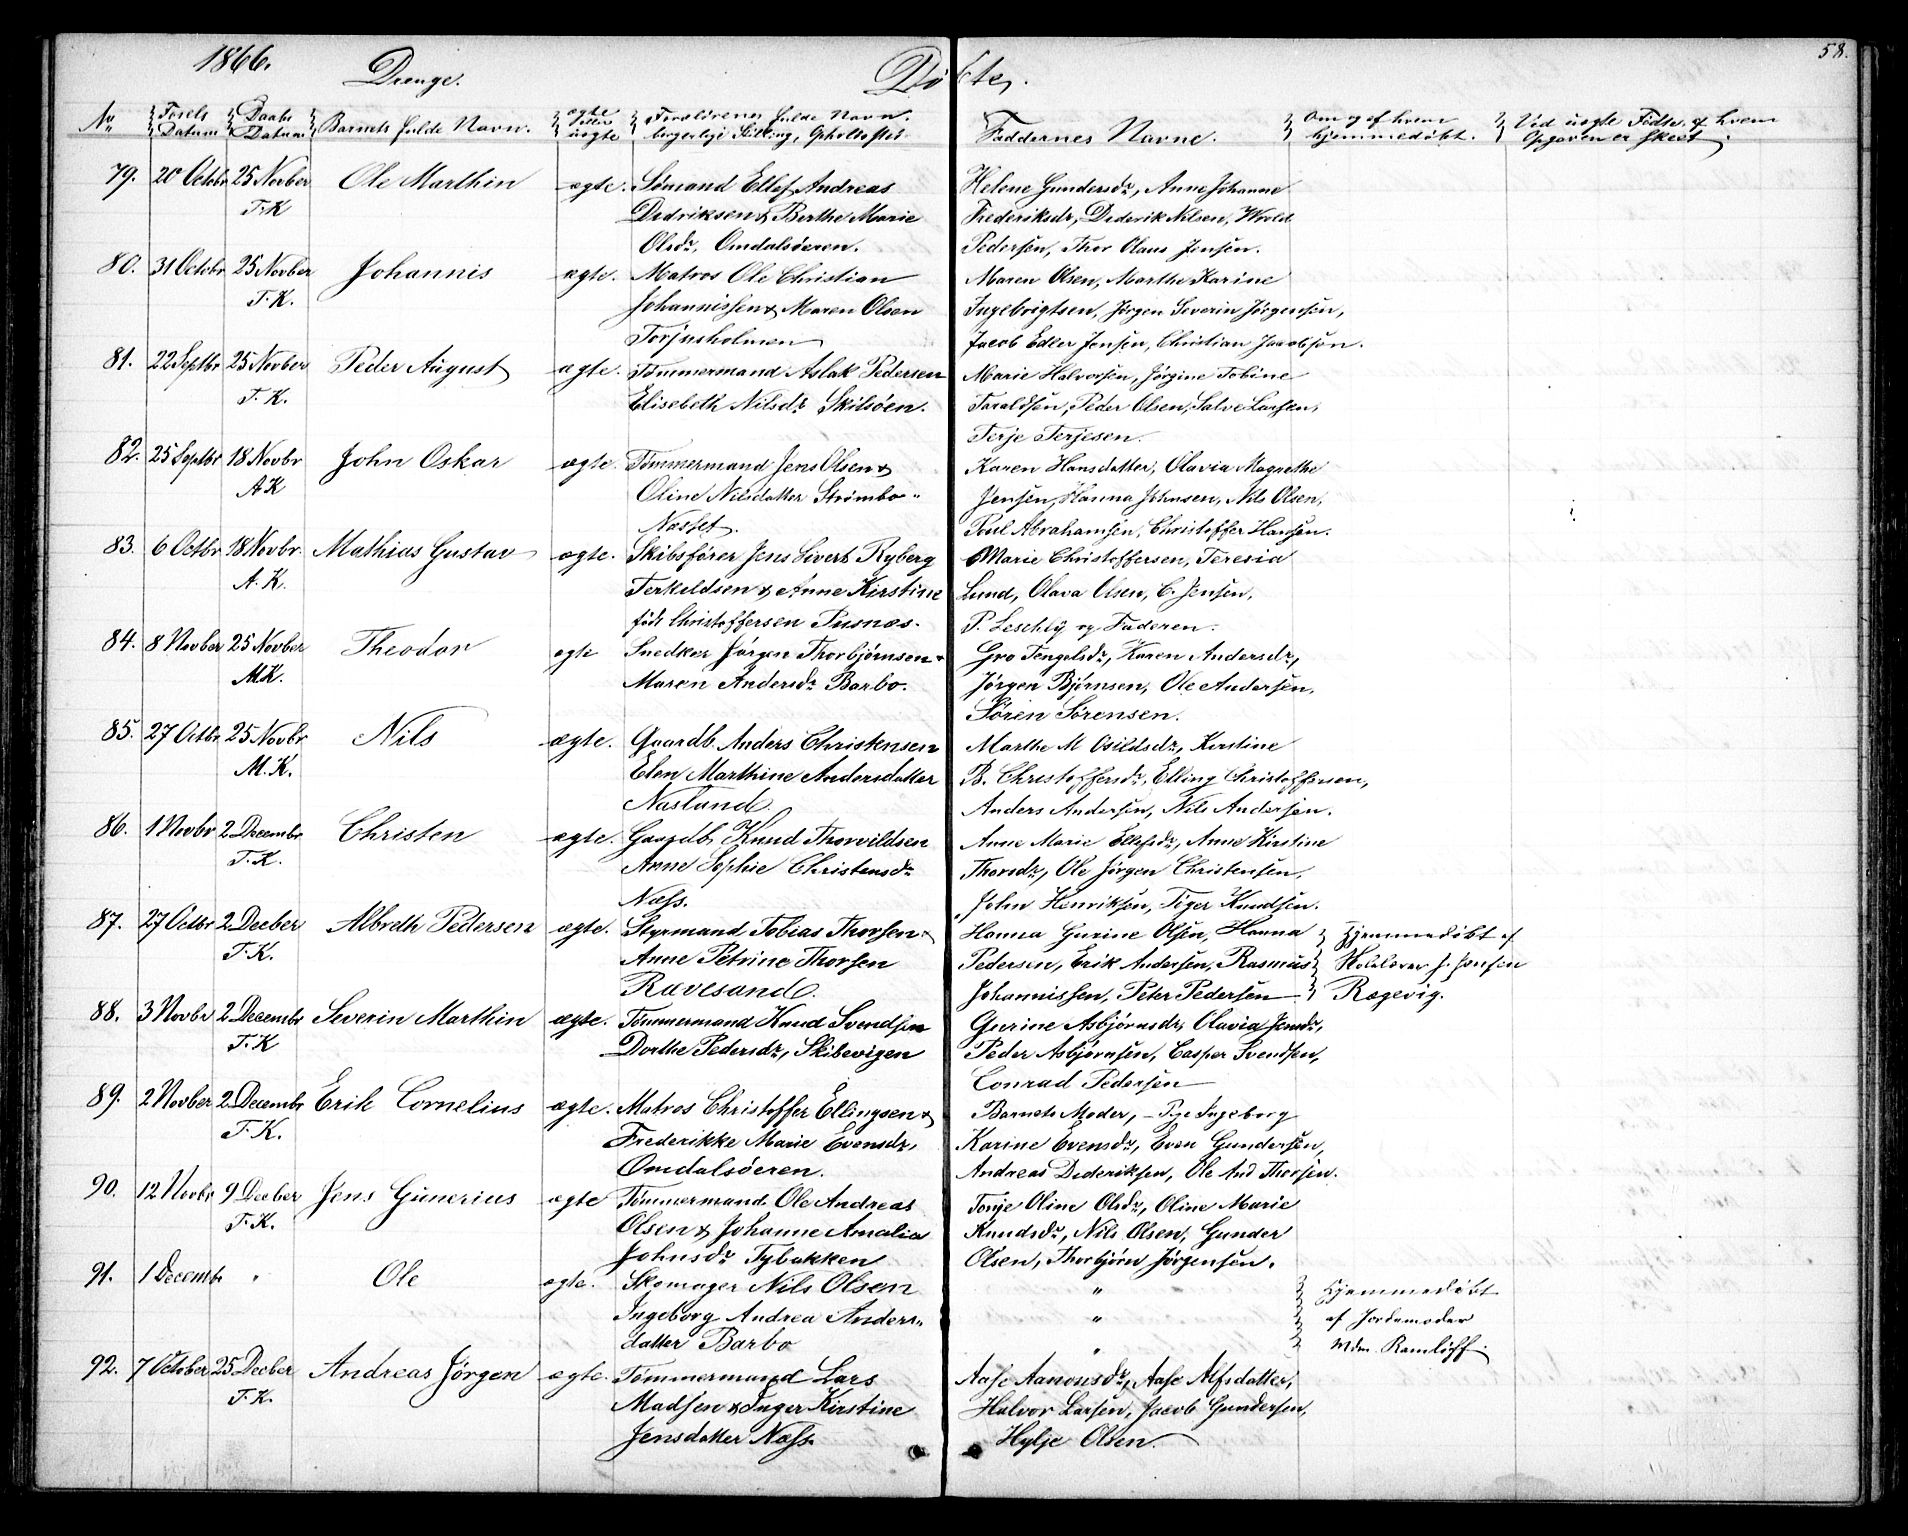 1866.
Drenge.
Døbte.
58.
No
Føsels Datum
Daabs Datum
Barnets fulde Navn.
ægte eller uægte
Forældrenes fulde Navn. borgerlige Stilling, Opholdssted
Faddernes Navne.
Om og af hvem hjemmedøbt.
Ved uægte Fødte, af hvem Opgaven er skeet.
79. 20 Octobr 25 Novber Ole Marthin ægte. Sømand Ellef Andreas Helene Gundersdr, Anne Johanne
T.K Dedriksen & Berthe Marie Frederiksdr, Dederik Nilsen, Wrold
Olsdr, Omdalsøeren. Pedersen, Thor Olaus Jensen.
80. 31 Octobr 25 Novber Johannis ægte. Matros Ole Christian Maren Olsen, Marthe Karine
T.K. Johannissen & Maren Olsen Ingebrigtsen, Jørgen Severin Jørgensen,
Torjusholmen Jacob Edler Jensen, Christian Jacobsen.
81. 22 Septbr 25 Novber Peder August ægte. Tømmermand Aslak Pedersen Marie Halvorsen, Jørgine Tobine
T.K. Elisebeth Nilsdr Skilsøen. Taraldsen, Peder Olsen, Salve Larsen,
Terje Terjesen.
82. 25 Septbr 18 Novbr John Oskar ægte. Tømmermand Jens Olsen & Karen Hansdatter, Olavia Magrethe
A K Oline Nilsdatter Strømbo- Jensen, Hanna Johnsen, Nils Olsen,
Næsset. Poul Abrahamsen, Christoffer Hansen.
83. 6 Octbr 18 Novbr. Mathias Gustav ægte. Skibsfører Jens Sivert Ryberg Marie Christoffersen, Teresia
A.K. Terkeldsen & Anne Kirstine Lund, Olava Olsen, C. Jensen,
født Christoffersen Pusnæs. P. og Faderen.
84. 8 Novber 25 Novber Theodor ægte Snedker Jørgen Thorbjørnsen & Gro Tengelsdr, Karen Andersdr,
M.K. Maren Andersdr Barbo. Jørgen Bjørnsen, Ole Andersen,
Søren Sørensen.
85. 27 Octbr 25 Novbr Nils ægte. Gaardb. Anders Christensen Marthe M Osildsdr, Kirstine
M.K. Elen Marthine Andersdatter B. Christoffersdr, Elling Christoffersen,
Næsland Anders Andersen, Nils Andersen.
86. 1 Novbr 2 Decembr Christen ægte. Gaardb. Knud Thorvildsen Anne Marie Ellefsdr, Anne Kirstine
T.K. Anne Sophie Christensdr Thorsdr, Ole Jørgen Christensen,
Næss. John Henriksen, Teger Knudsen.
87. 27 Octbr 2 Decber Albreth Pedersen ægte. Styrmand Tobias Thorsen & Hanna Gurine Olsen, Hanna Hjemmedøbt af
T.K. Anne Petrine Thorsen Pedersen, Erik Andersen, Rasmus J. Jensen
Rævesand. Johannissen, Peter Pedersen Rægevig.
88. 3 Novbr 2 Decembr Severin Marthin ægte. Tømmermand Knud Svendsen Gurine Asbjørnsdr, Olavia Jensdr,
T.K Dorthe Pedersdr, Skibevigen Peder Asbjørnsen, Casper Svendsen,
Conrad Pedersen
89. 2 Novber 2 Decembr Erik Cornelius ægte. Matros Christoffer Ellingsen & Barnets Moder, - Pige Ingeborg
T.K. Frederikke Marie Evensdr, Karine Evensdr, Even Gundersen,
Omdalsøeren. Andreas Dederiksen, Ole And Thorsen.
90. 12 Novbr 9 Decber Jens Gunerius ægte Tømmermand Ole Andreas Tonje Oline Olsdr, Oline Marie
T.K. Olsen & Johanne Amalia Knudsdr, Nils Olsen, Gunder
Johnsdr Tybakken Olsen, Thorbjørn Jørgensen.
91. 1 Decembr " Ole ægte. Skomager Nils Olsen " Hjemmedøbt
Ingeborg Andrea Anders- " af Jordemoder
datter Barbo " Mdm. Ramløff.
92. 7 October 25 Decber Andreas Jørgen ægte. Tømmermand Lars Aase Aanonsdr, Aase Alfsdatter,
T.K. Madsen & Inger Kirstine Halvor Larsen, Jacob Gundersen,
Jensdatter Næss. Hylje Olsen.